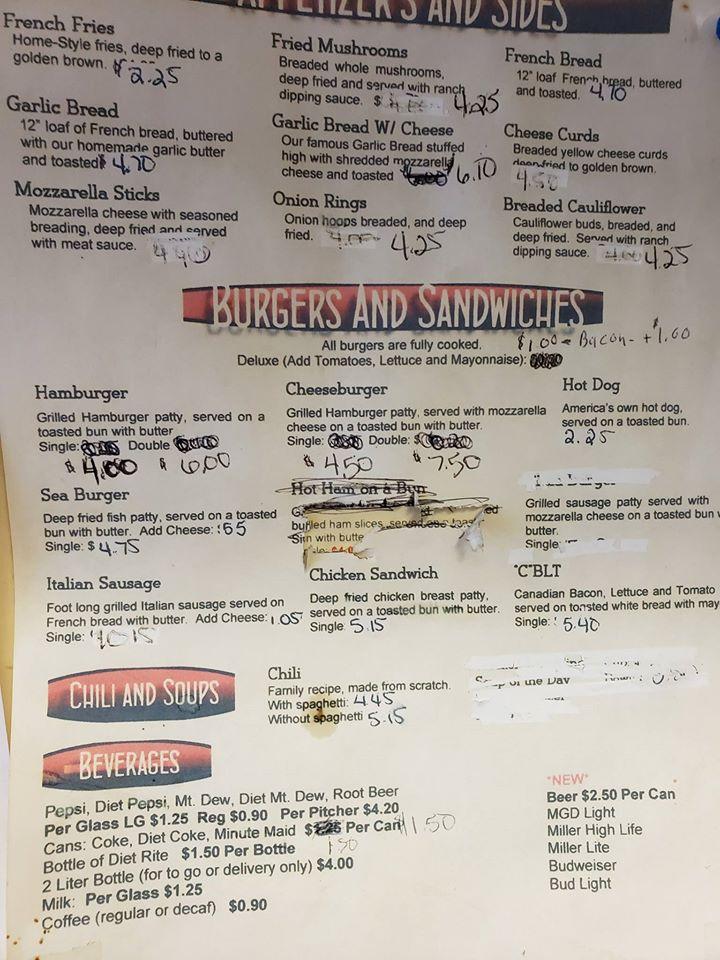 APPETIZER'S AND SIDES
French Fries
Home-Style fries, deep fried to a
golden brown. $ 2.25
Garlic Bread
12" loaf of French bread, buttered
with our homemade garlic butter
and toasted 4.70
Mozzarella Sticks
Mozzarella cheese with seasoned
breading, deep fried and served
with meat sauce.
Fried Mushrooms
Breaded whole mushrooms,
deep fried and served with ranch
dipping sauce. $ 4.25
Garlic Bread W/ Cheese
Our famous Garlic Bread stuffed
high with shredded mozzarella
cheese and toasted 6.10
Onion Rings
Onion hoops breaded, and deep
fried. 4.25
French Bread
12" loaf French bread, buttered
and toasted. 4.70
Cheese Curds
Breaded yellow cheese curds
deep fried to golden brown.
4.50
Breaded Cauliflower
Cauliflower buds, breaded, and
deep fried. Served with ranch
dipping sauce. 4.25
BURGERS AND SANDWICHES
All burgers are fully cooked. $1.00 Bacon- +$1.00
Deluxe (Add Tomatoes, Lettuce and Mayonnaise):
Hamburger
Grilled Hamburger patty, served on a
toasted bun with butter
Single: Double
$4.00 $ 6.00
Cheeseburger
Grilled Hamburger patty, served with mozzarella
cheese on a toasted bun with butter.
Single: Double: $
$ 4.50 $7.50
Hot Dog
America's own hot dog,
served on a toasted bun.
2.25
Sea Burger
Deep fried fish patty, served on a toasted
bun with butter. Add Cheese: .55
Single: $ 4.75
Hot Ham on a Bun
ham slices,
with butter
Grilled sausage patty served with
mozzarella cheese on a toasted bun
butter.
Single
Italian Sausage
Foot long grilled Italian sausage served on
French bread with butter. Add Cheese: 1.05
Single:
Chicken Sandwich
Deep fried chicken breast patty,
served on a toasted bun with butter.
Single 5.15
"C"BLT
Canadian Bacon, Lettuce and Tomato
served on toasted white bread with may
Single: 5.40
CHILI AND SOUPS
Chili
Family recipe, made from scratch.
With spaghetti: 4.45
Without spaghetti 5.15
Soup of the Day
BEVERAGES
Pepsi, Diet Pepsi, Mt. Dew, Diet Mt. Dew, Root Beer
Per Glass LG $1.25 Reg $0.90 Per Pitcher $4.20
Cans: Coke, Diet Coke, Minute Maid $1.25 Per Can $1.50
Bottle of Diet Rite $1.50 Per Bottle
2 Liter Bottle (for to go or delivery only) $4.00
Milk: Per Glass $1.25
Coffee (regular or decaf) $0.90
*NEW*
Beer $2.50 Per Can
MGD Light
Miller High Life
Miller Lite
Budweiser
Bud Light